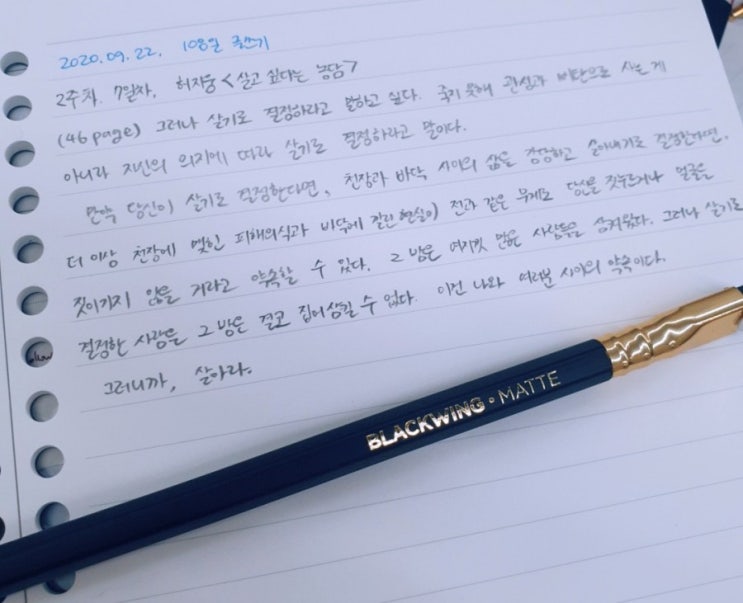 2020.09.22. 108일 글쓰기
2주차. 7일차. 허지웅 <살고 싶다는 농담>
(46 page) 그러나 살기로 결정하라고 말하고 싶다. 죽지 못해 관성과 비탄으로 사는 게
아니라 자신의 의지에 따라 살기로 결정하라고 말이다.
만약 당신이 살기로 결정한다면, 천장과 바닥 사이의 삶을 감당하고 살아내기로 결정한다면,
더 이상 천장에 맺힌 피해의식과 바닥에 깔린 현실이 전과 같은 무게로 당신을 짓누르거나 얼굴을
짓이기지 않을 거라고 약속할 수 있다. 그 밤은 여지껏 많은 사람들을 삼켜왔다. 그러나 살기로
결정한 사람을 그 밤은 결코 집어삼킬 수 없다. 이건 나와 여러분 사이의 약속이다.
그러니까, 살아라.
BLACKWING MATTE